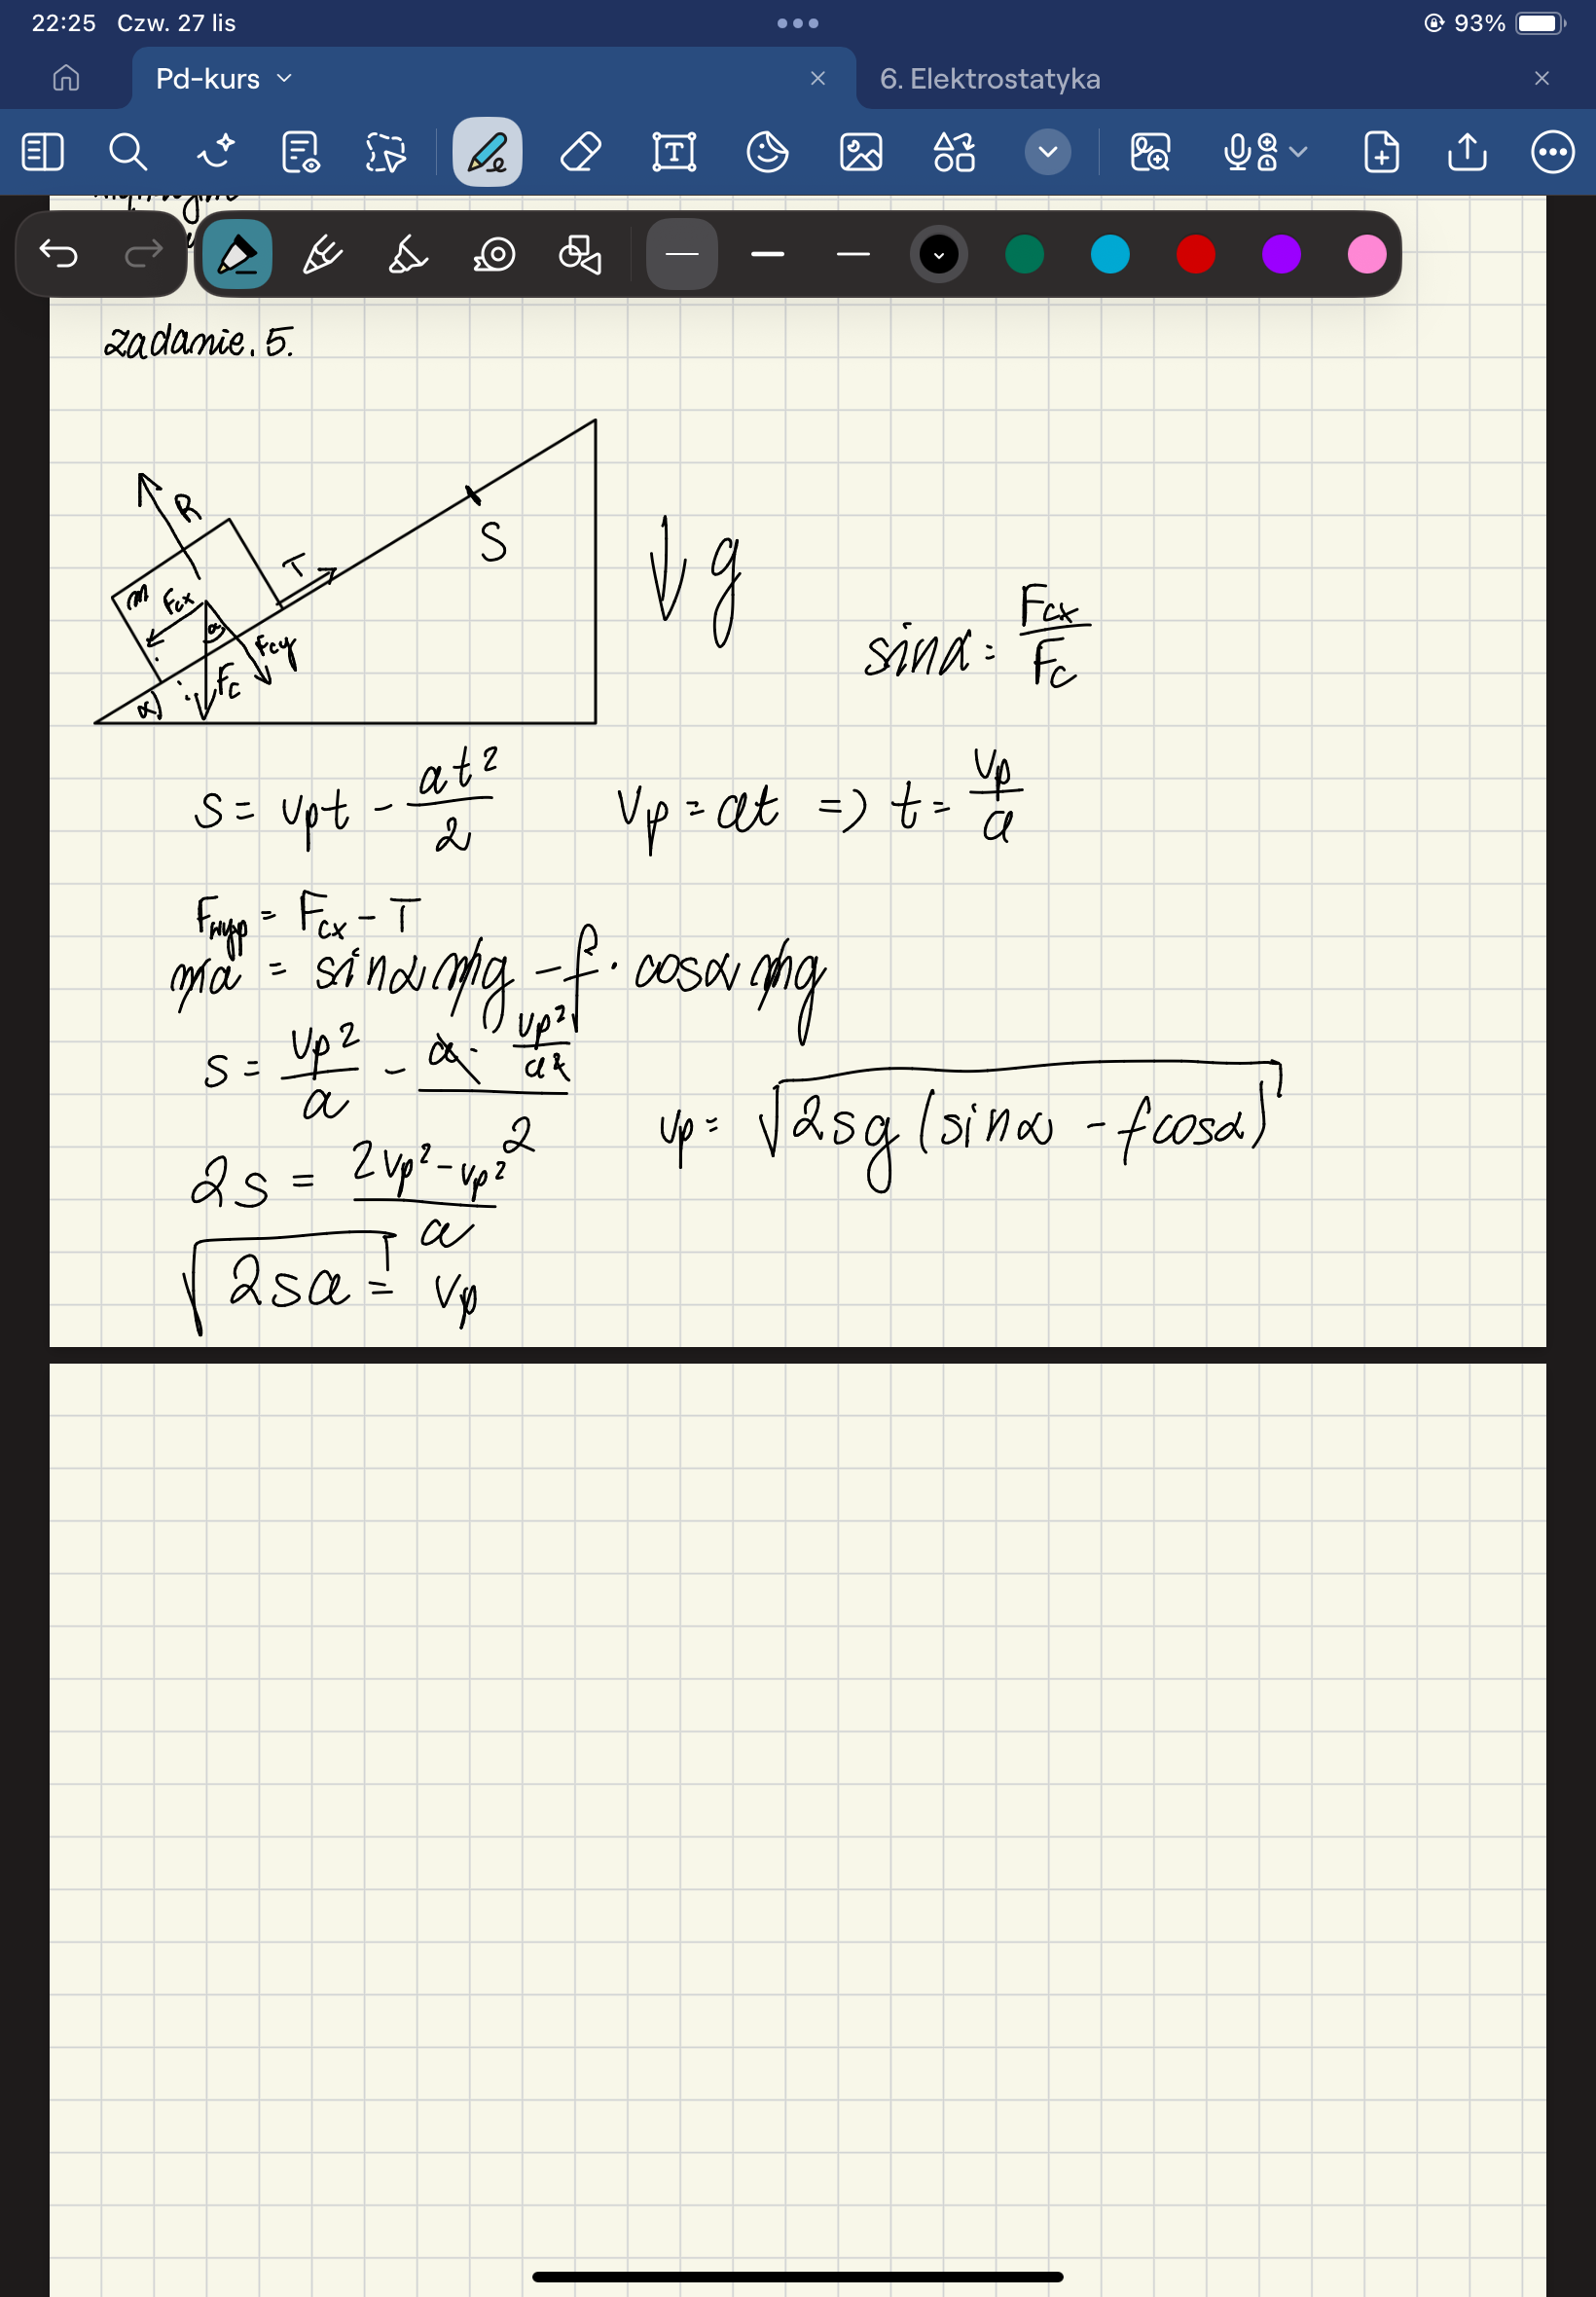 22:25 Czw. 27 lis
93%
Pd-kurs
6. Elektrostatyka
zadanie. 5.
R
T
S
m
Fcx
α
Fcy
Fc
α
g
sinα = Fcx / Fc
s = vpt - at² / 2
vp = at => t = vp / a
Fwyp = Fcx - T
ma = sinα mg - f · cosα mg
s = vp² / a - a · vp² / a² / 2
2s = 2vp² - vp² / a
vp = √2sg (sinα - fcosα)
√2sa = vp